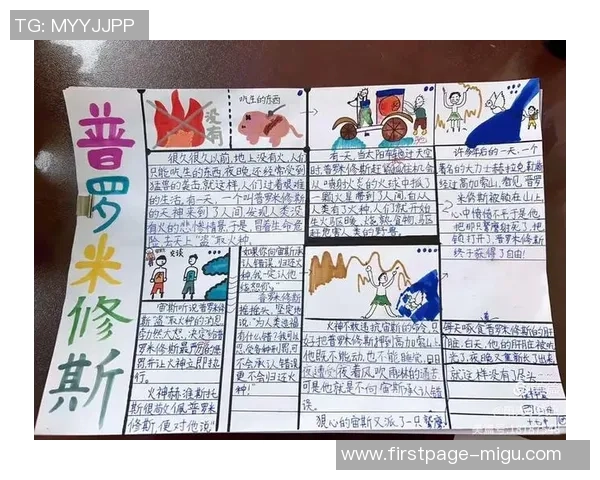 TG: MYYJJPP
普罗米修斯
没有
吃生的东西
很久很久以前,地上没有火,人们
只能吃生的东西,夜晚还经常受到
猛兽的袭击,就这样,人们过着艰难
的生活。有一天,一个叫普罗米修斯
的天神来到了人间,发现人类没
有火的悲惨情景,于是,冒着生命危
险,去天上"盗"取火种。
有一天,当太阳车经过天空
时,普罗米修斯
从
一颗火星带到了人间,自从
人类有了火种,人们就开始
生火取暖、烧熟食物、驱赶
危害人类的野兽。
许多年后的一天,一个
著名的大力士赫拉克勒斯
经过高加索山,看见普罗
米修斯被锁在山上,
心中愤愤不平,于是他
锁打开了,普罗米修斯
终于获得了自由!
交谈
宙斯听说普罗米修
斯"盗"取火种的消息,
决定给
普罗米修斯最严厉的惩
罚,并让火神立即执
行。
火神赫准斯托
斯很敬佩普罗
修斯,便对他说"
如果你向宙斯承
认错误,归还火
种,我一定让他
饶恕你。"
普罗米修斯
摇摇头,坚定地
说:"为人类造福
有什么错?我可以
忍受各种刑罚,可
不会承认错误,
更不会归还火
种!"
火神不敢违抗宙斯的命令,只
好把普罗米修斯押到高加索山上,
他既不能动,也不能睡觉,日日
夜夜遭受着风吹雨林的痛苦,
可是他就是不向宙斯承认错
误。
狠心的宙斯又派了一只鹫鹰
每天啄食普罗米修斯的肝
脏,白天,他的肝脏被吃
光了,夜晚又重新长了出来,
就这样没有尽头……
www.firstpage-migu.com